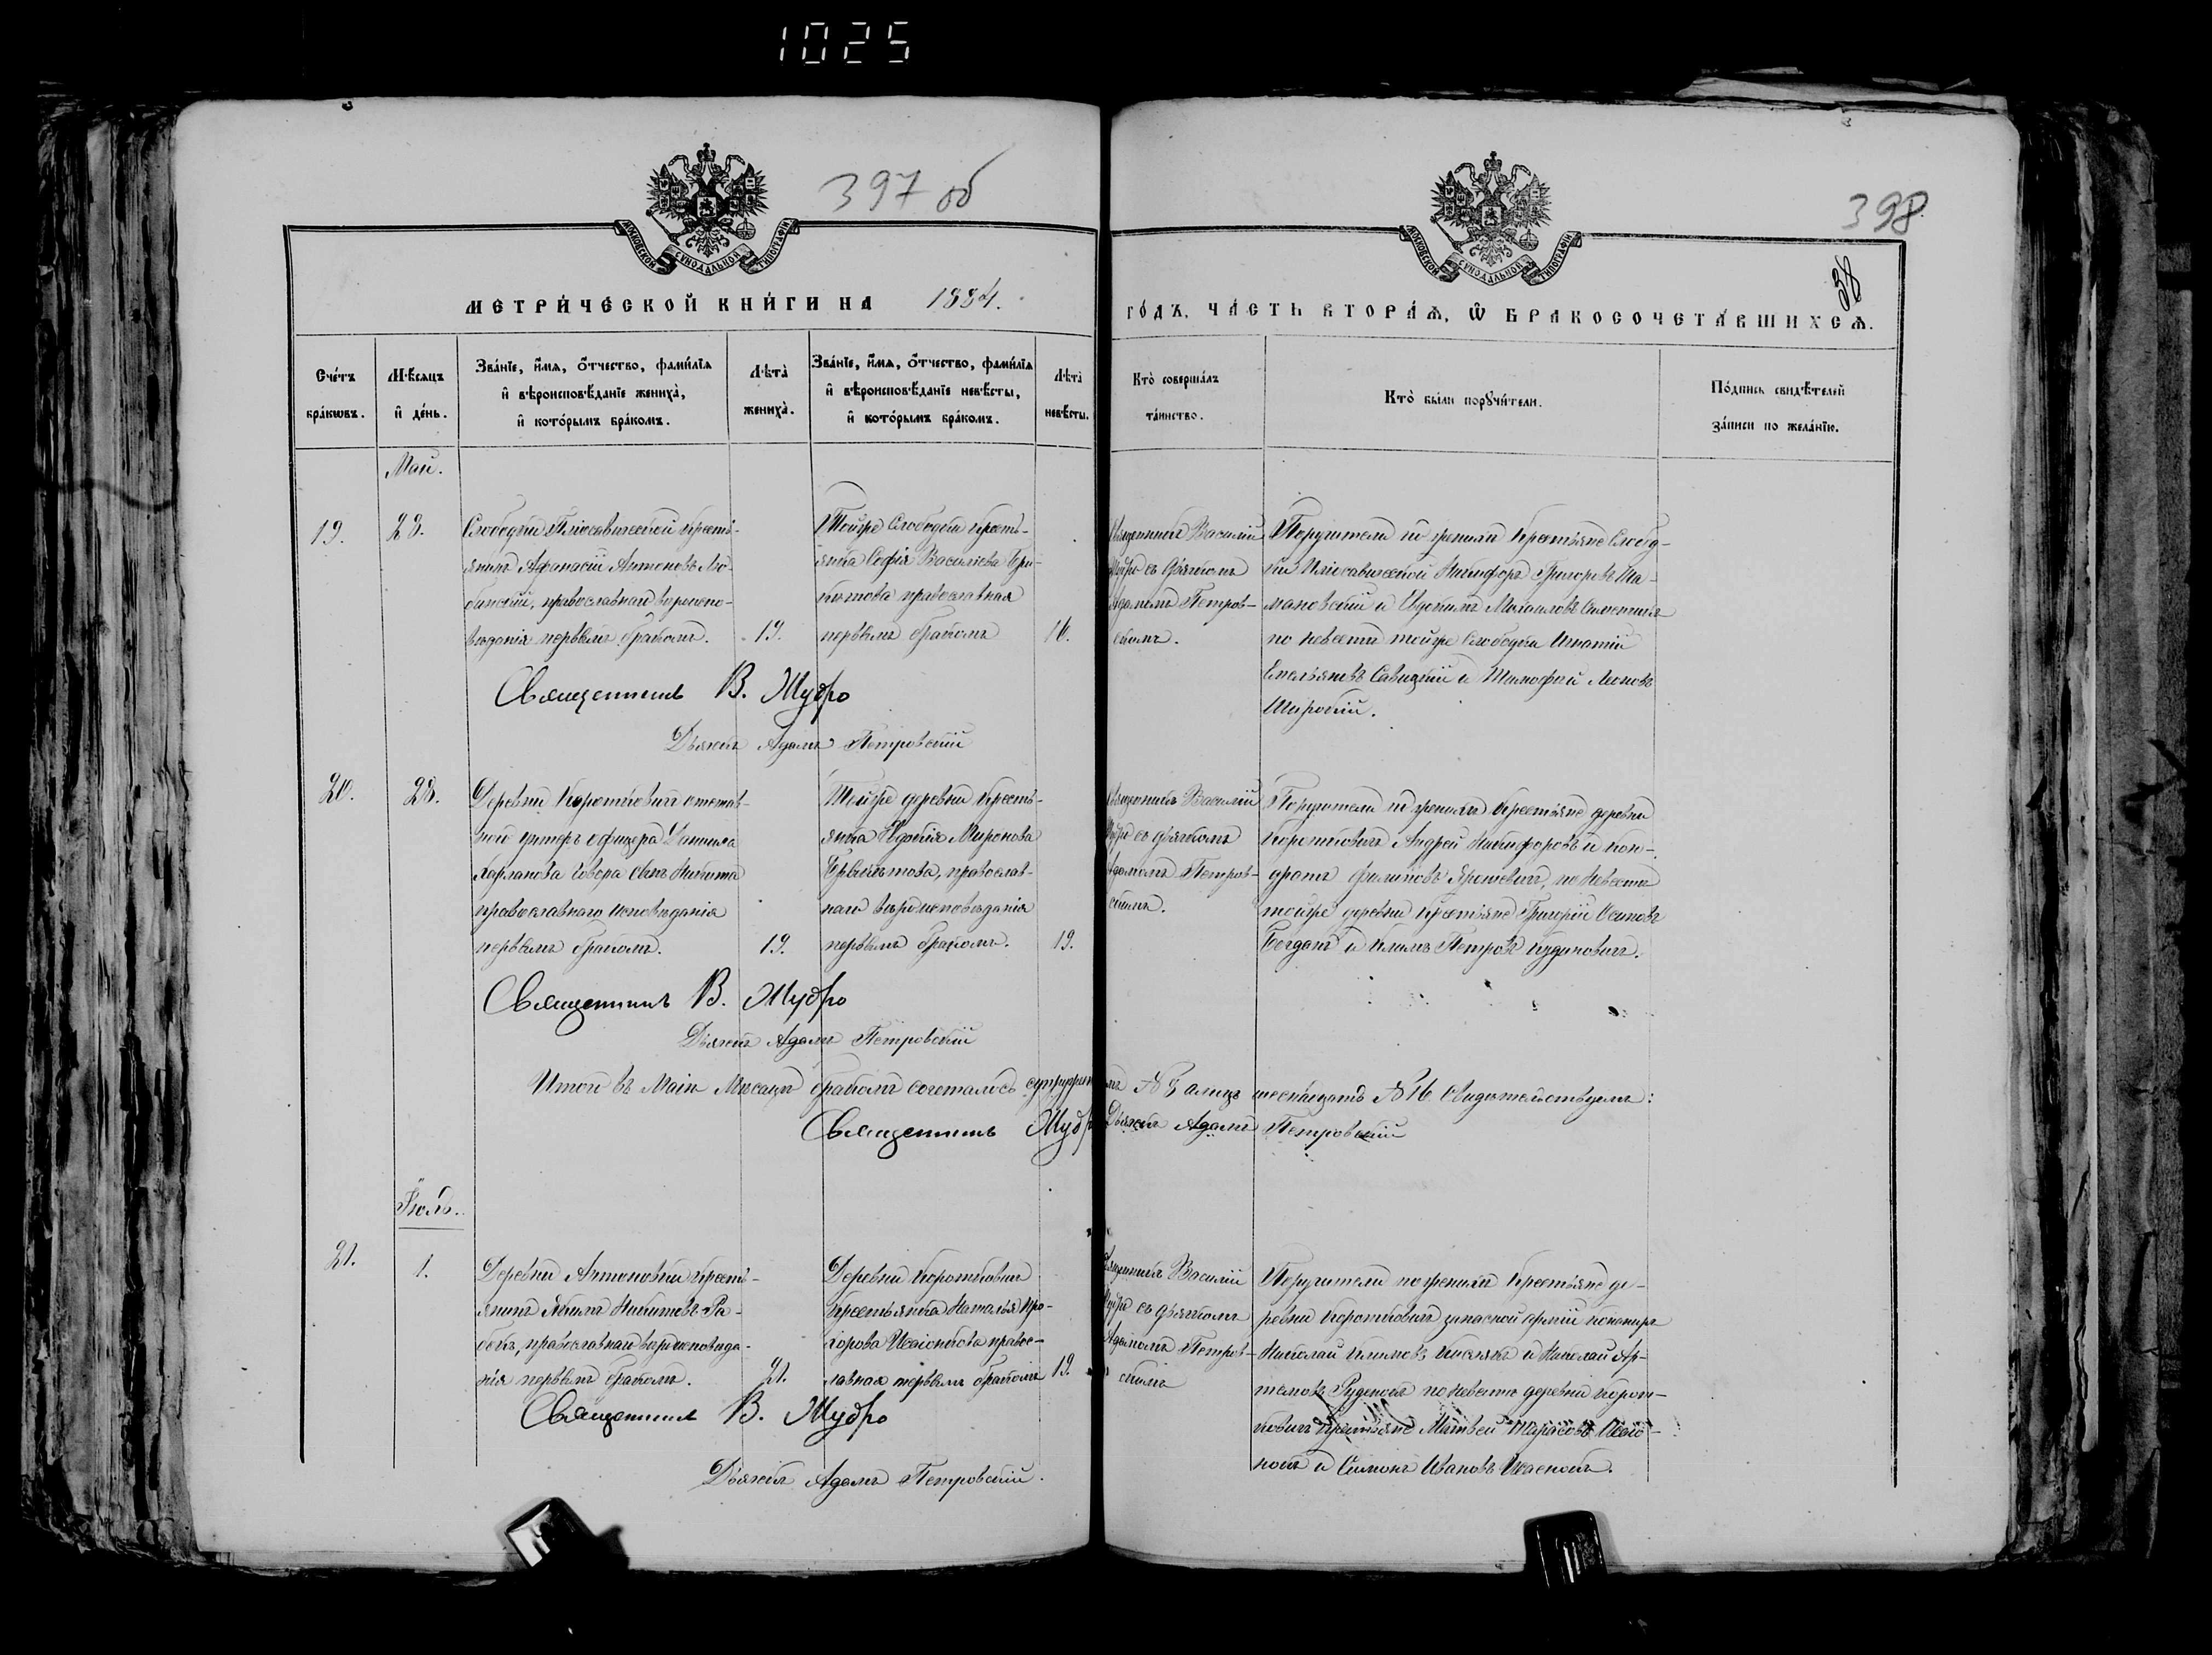 1025
397 об
398
38
МОСКОВСКОЙ СѴНОДАЛЬНОЙ ТИПОГРАФІИ
МОСКОВСКОЙ СѴНОДАЛЬНОЙ ТИПОГРАФІИ
МЕТРИ́ЧЕСКОЙ КНИ́ГИ НА 1884.
ГО́ДЪ, ЧА́СТЬ ВТОРА́Ѧ, Ѿ БРАКОСОЧЕТА́ВШИХСѦ.
Сче́тъ бра́кѡвъ.
Мѣ́сѧцъ и҆ де́нь.
Зва́нїе, и҆́мѧ, ѻ҆́тчество, фами́лїѧ
и҆ вѣроисповѣ́данїе жениха̀,
и҆ кото́рымъ бра́комъ.
Лѣта̀ жениха̀.
Зва́нїе, и҆́мѧ, ѻ҆́тчество, фами́лїѧ
и҆ вѣроисповѣ́данїе невѣ́сты,
и҆ кото́рымъ бра́комъ.
Лѣта̀ невѣ́сты.
Кто̀ соверша́лъ та́инство.
Кто̀ бы́ли порꙋчи́тели.
По́дпись свидѣ́телей за́писи по жела́нїю.
Май.
19.
28.
Слободки кресть-
янинъ Афанасій Антоновъ
православнаго вѣроиспо-
вѣданія первымъ бракомъ.
19.
Тойже Слободки кресть-
янка Софія Васильева
православная
первымъ бракомъ
16.
Священникъ Василій
Мудро съ Дьячкомъ
Адамомъ Петров-
скимъ.
Поручители по женихѣ Крестьяне Слобод-
ки Никифоръ Григоровъ
и Михаиловъ
по невѣстѣ тойже Слободки Игнатій
Емельяновъ Савицкій и Тимофей
Широкій.
Священникъ В. Мудро
Дьячекъ Адамъ Петровскій
20.
28.
Деревни Короткович отстав-
ного унтеръ офицера Даниила
Харланова Говора сынъ Никита
православнаго исповѣданія
первымъ бракомъ.
19.
Тойже деревни Кресть-
янка Миронова
православ-
наго вѣроисповѣданія
первымъ бракомъ.
19.
Священникъ Василій
Мудро съ дьячкомъ
Адамомъ Петров-
скимъ.
Поручители по женихѣ Крестьяне деревни
Короткович Андрей Никифоровъ и Кон-
дратъ Филиповъ Ярошевич, по невѣстѣ
тойже деревни Крестьяне Григорій Осиповъ
Богданъ и Климъ Петровъ
Священникъ В. Мудро
Дьячекъ Адамъ Петровскій
Итого въ Маіѣ Мѣсяцѣ бракомъ сочеталось № 8 а лицъ № 16. Свидѣтельствуемъ:
Священникъ Мудро Дьячекъ Адамъ Петровскій
Іюль.
21.
1.
Деревни Антоновки Кресть-
янинъ Никитовъ
православнаго вѣроисповѣда-
нія первымъ бракомъ.
21.
Деревни Короткович
Крестьянка Наталья Про-
хорова правос-
лавная первымъ бракомъ
19.
Священникъ Василій
Мудро съ дьячкомъ
Адамомъ Петров-
скимъ
Поручители по женихѣ Крестьяне де-
ревни Короткович запасной арміи
Николай Климовъ и Николай Ар-
темовъ Руденокъ по невѣстѣ деревни Корот-
кович Крестьяне Матвей Тарасовъ
и Симонъ Ивановъ
Священникъ В. Мудро
Дьячекъ Адамъ Петровскій.